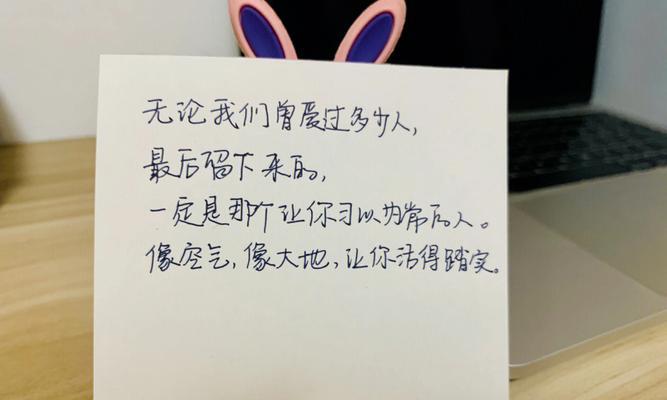 无论我们曾爱过多少人,
最后留下来的,
一定是那个让你习以为常的人。
像空气,像大地,让你活得踏实。